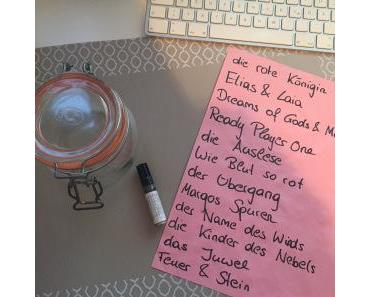 die rote Königin
Elias & Laia
Dreams of Gods & M
Ready Player One
die Auslese
Wie Blut so rot
der Übergang
Margos Spuren
der Name des Winds
die Kinder des Nebels
das Juwel
Feuer & Stein